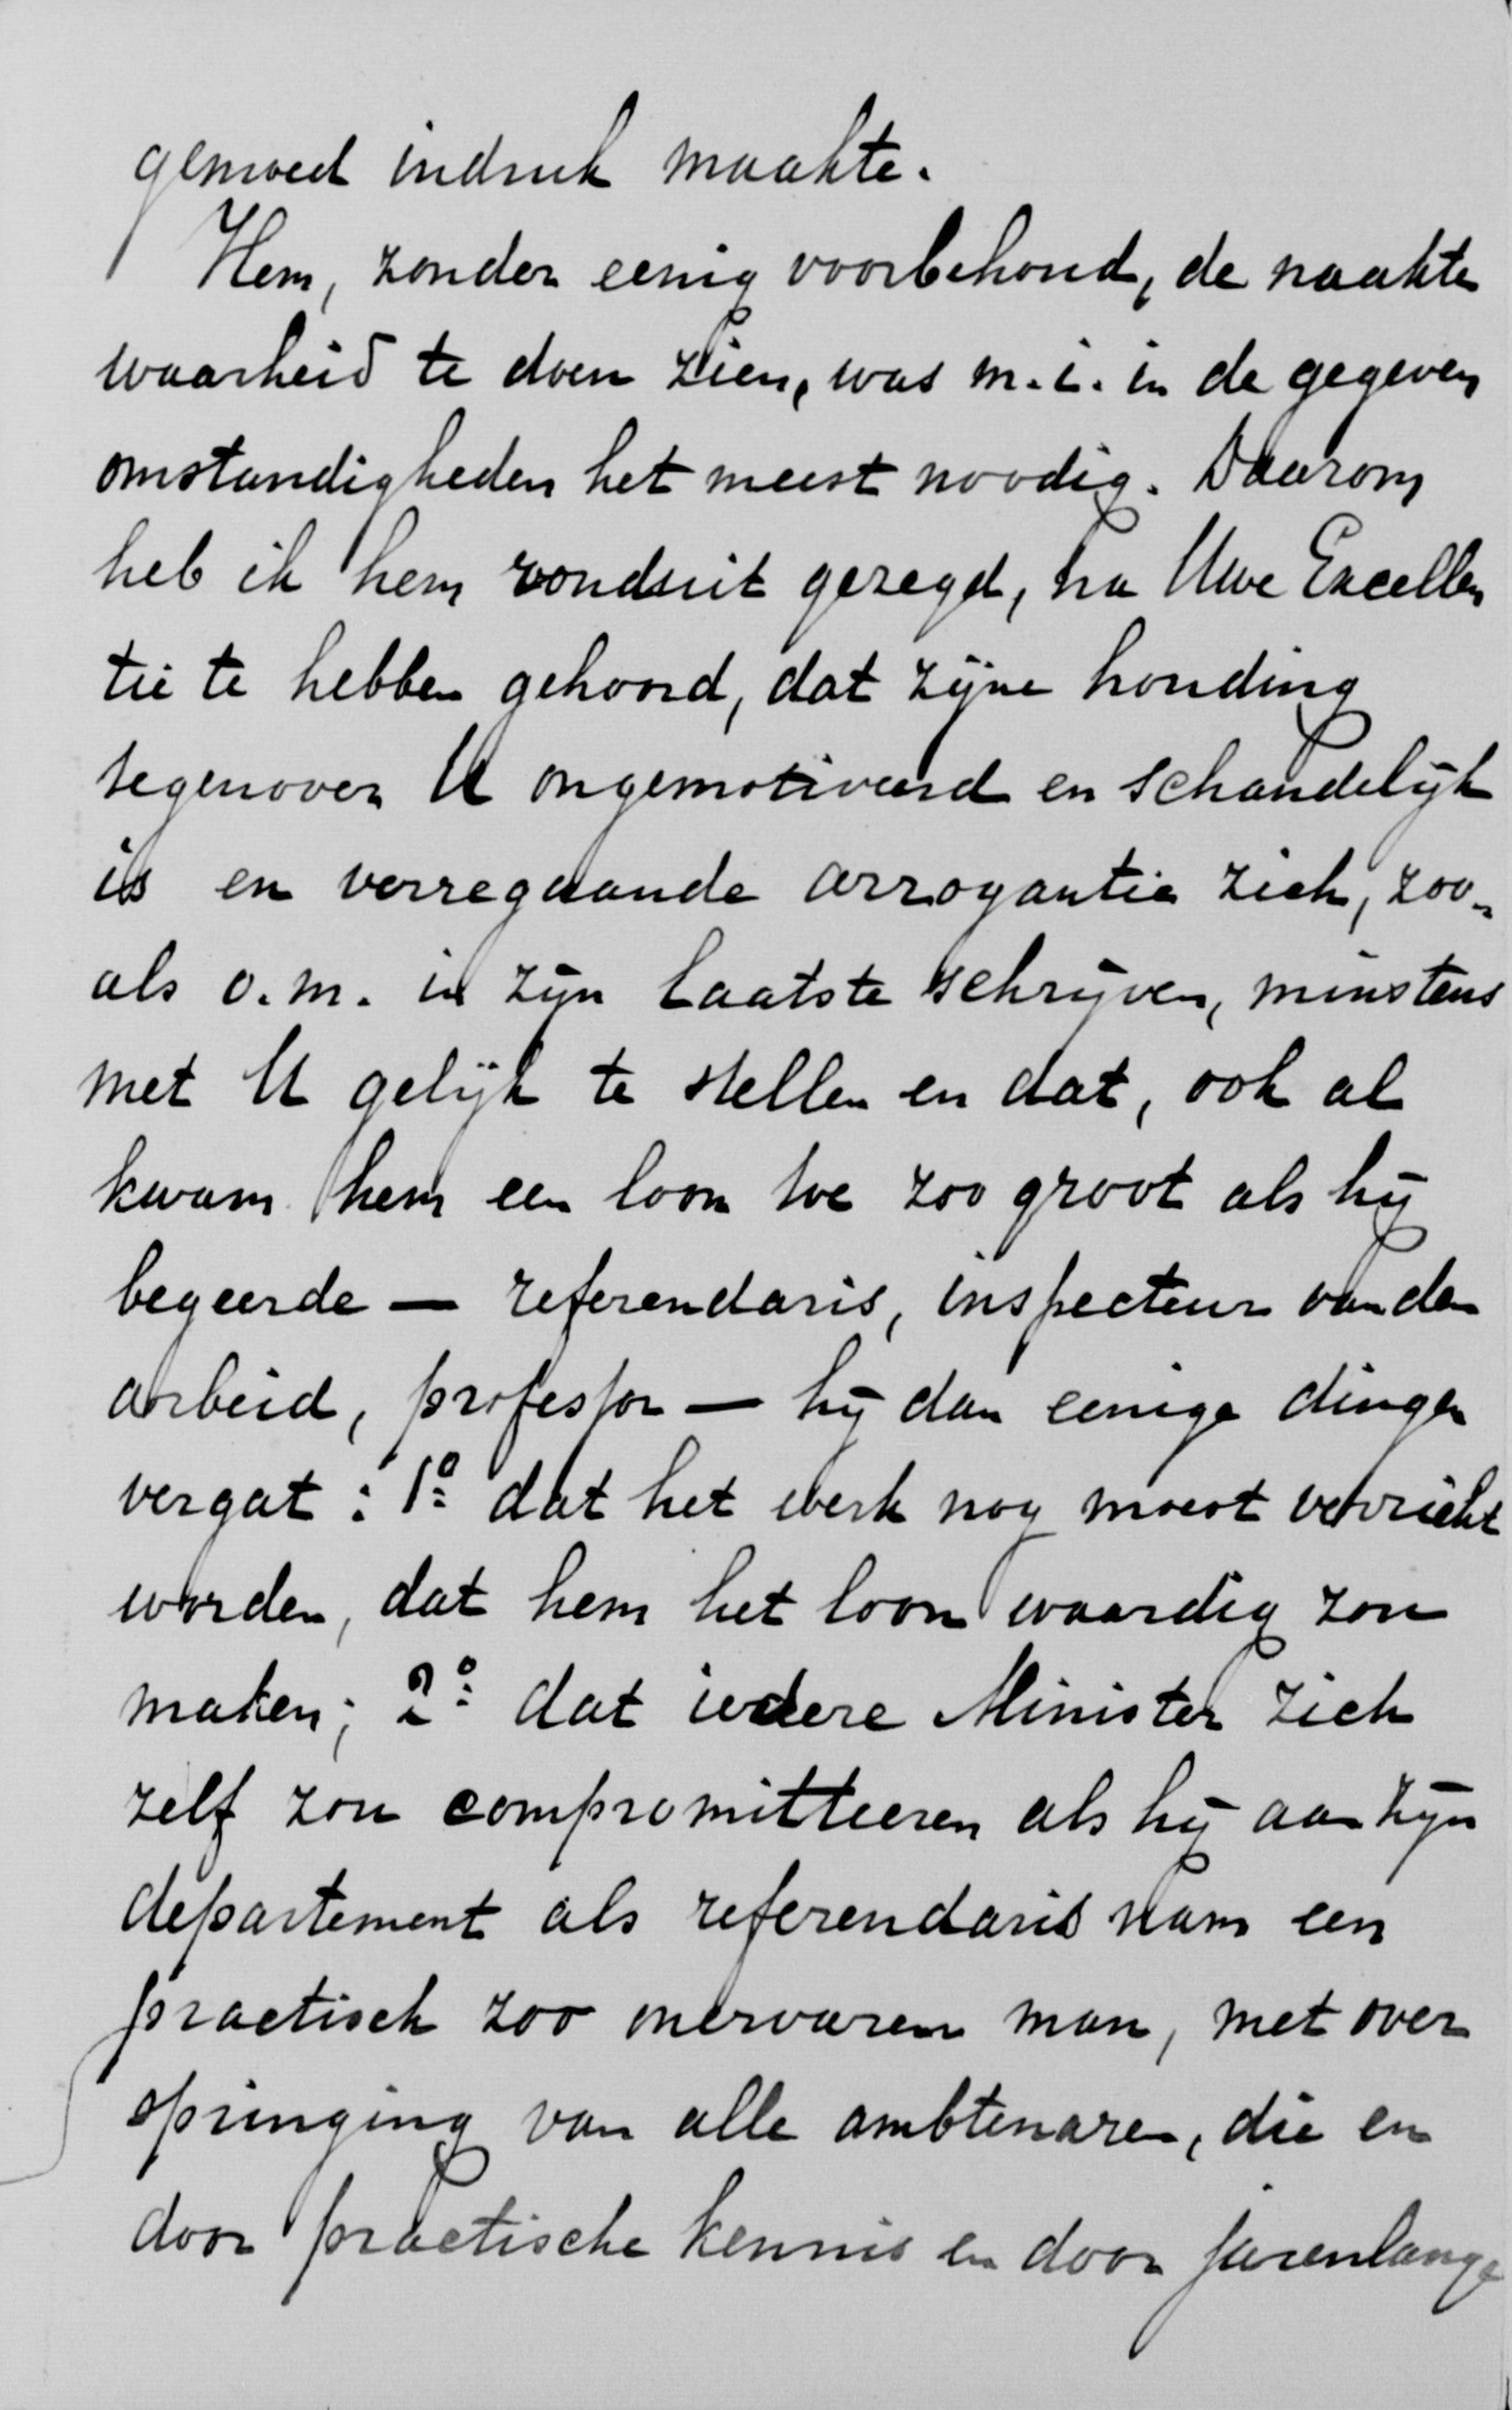 gemoed indruk maakte.
Hem, zonder eenig voorbehoud, de naakte
waarheid te doen zien, was m.i. in de gegeven
omstandigheden het meest noodig. Daarom
heb ik hem ronduit gezegd, na Uwe Excellen
tie te hebben gehoord, dat zijne houding
tegenover U ongemotiveerd en schandelijk
is en verregaande arrogantie zich, zoo-
als o.m. in zijn laatste schrijven, minstens
met U gelijk te stellen en dat, ook al
kwam hem een loon toe zoo groot als hij
begeerde — referendaris, inspecteur van den
arbeid, professor — hij dan eenige dingen
vergat: 1º dat het werk nog moest verricht
worden, dat hem het loon waardig zou
maken; 2º dat iedere Minister zich
zelf zou compromitteeren als hij aan zijn
departement als referendaris nam een
practisch zoo onervaren man, met over
springing van alle ambtenaren, die en
door practische kennis en door jarenlange